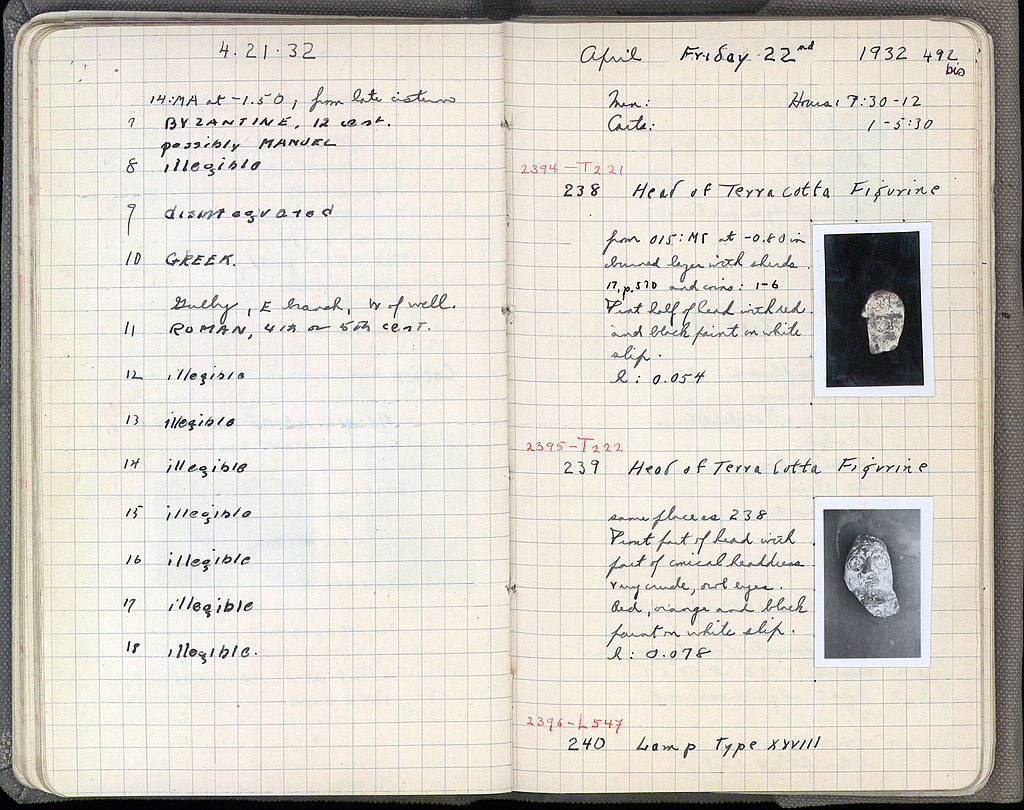 4.21.32
14:MA at -1.50, from late cistern
7 BYZANTINE, 12 cent.
possibly MANUEL
8 illegible
9 disintegrated
10 GREEK.
Gully, E branch, W of well.
11 ROMAN, 4th or 5th cent.
12 illegible
13 illegible
14 illegible
15 illegible
16 illegible
17 illegible
18 illegible.
April Friday 22nd 1932 492
bis
Men: Hours: 7:30-12
Carts: 1-5:30
2394-T221
238 Head of Terracotta Figurine
from 015:MΓ at -0.80 in
burned layer with sherds
17, p.570 and coins: 1-6
Front half of head with red
and black paint on white
slip.
h: 0.054
2395-T222
239 Head of Terra Cotta Figurine
same place as 238
Front part of head with
part of conical headdress
very crude, owl eyes.
Red, orange and black
paint on white slip.
h: 0.078
2396-L547
240 Lamp Type XXVIII